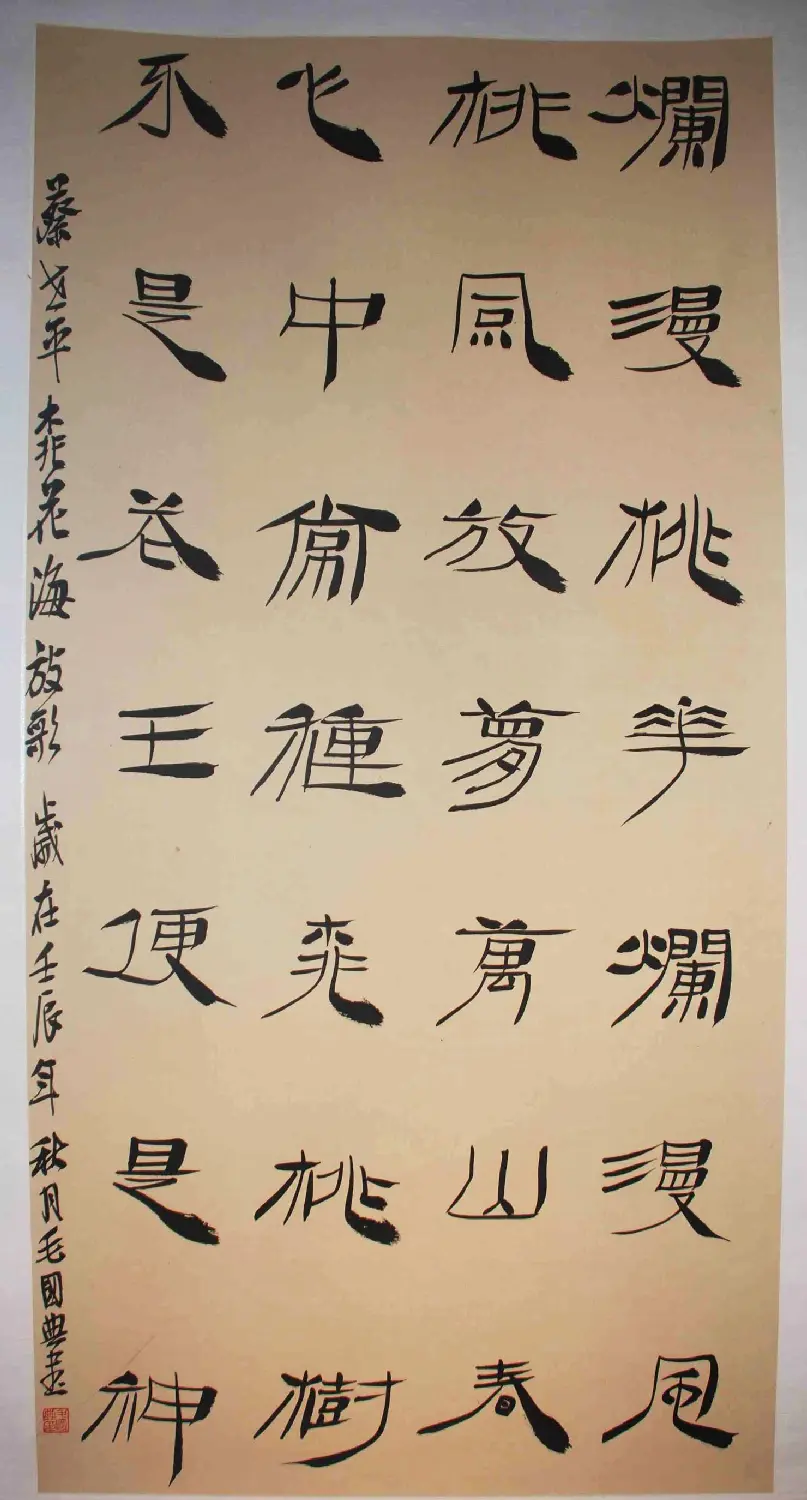 爛漫桃華爛漫風
桃風放夢萬山春
心中常種桃樹
不是谷王便是神
蔡世平桃花海放歌 歲在壬辰年秋月毛國典書